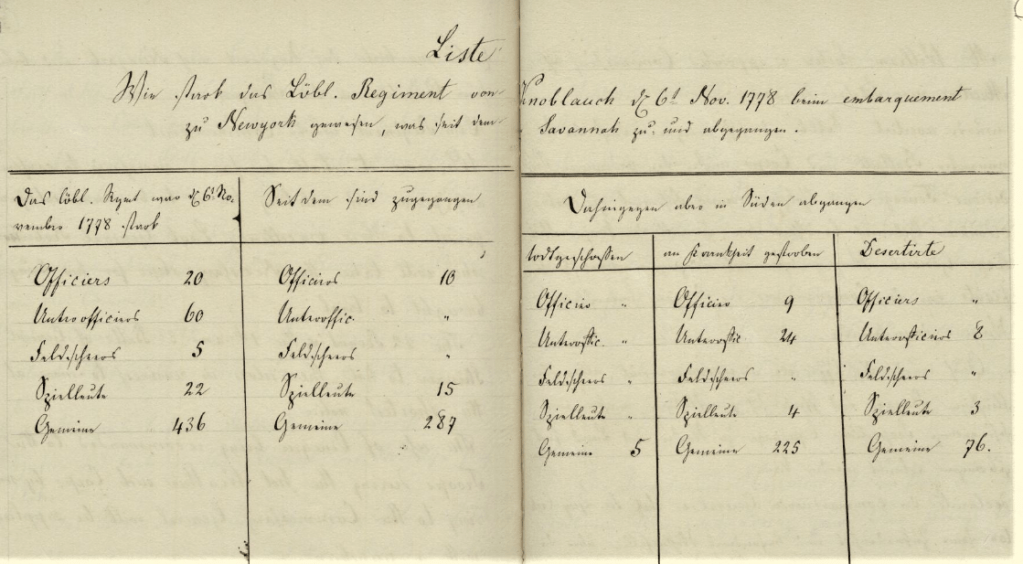 Liste
Wie stark das Löbl. Regiment von Knoblauch d 6t Nov. 1778 beim embarquement
zu Newyork gewesen, was seit dem Savannah zu und abgegangen.
Das löbl. Rgmt war d 6t No-
vember 1778 stark
Officiers 20
Unterofficiers 60
Feldscheers 5
Spielleute 22
Gemeine 436
Seit dem sind zugegangen
Officiers 10
Unteroffic. "
Feldscheers "
Spielleute 15
Gemeine 287
Dahingegen aber in Süden abgangen
todtgeschossen
Officier "
Unteroffic. "
Feldscheers "
Spielleute "
Gemeine 5
an Krankheit gestorben
Officier 9
Unteroffic. 24
Feldscheers "
Spielleute 4
Gemeine 225
Desertirte
Officiers "
Unterofficiers 8
Feldscheers "
Spielleute 3
Gemeine 76.